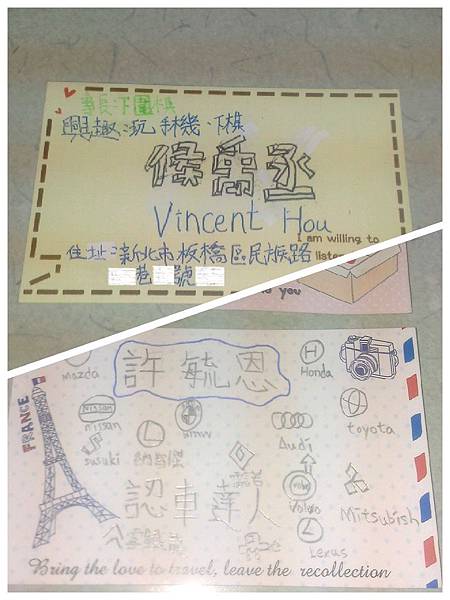 專長:下圍棋
興趣:玩手機、下棋
侯禹丞
Vincent Hou
住址:新北市板橋區民族路
巷 號
I am willing to
listen
to you
許毓恩
mazda
Honda
FRANCE
Nissan
nissan
BMW
Audi
toyota
susuki
納智傑
volvo
Volvo
Mitsubish
認車達人
Lexus
Bring the love to travel, leave the recollection